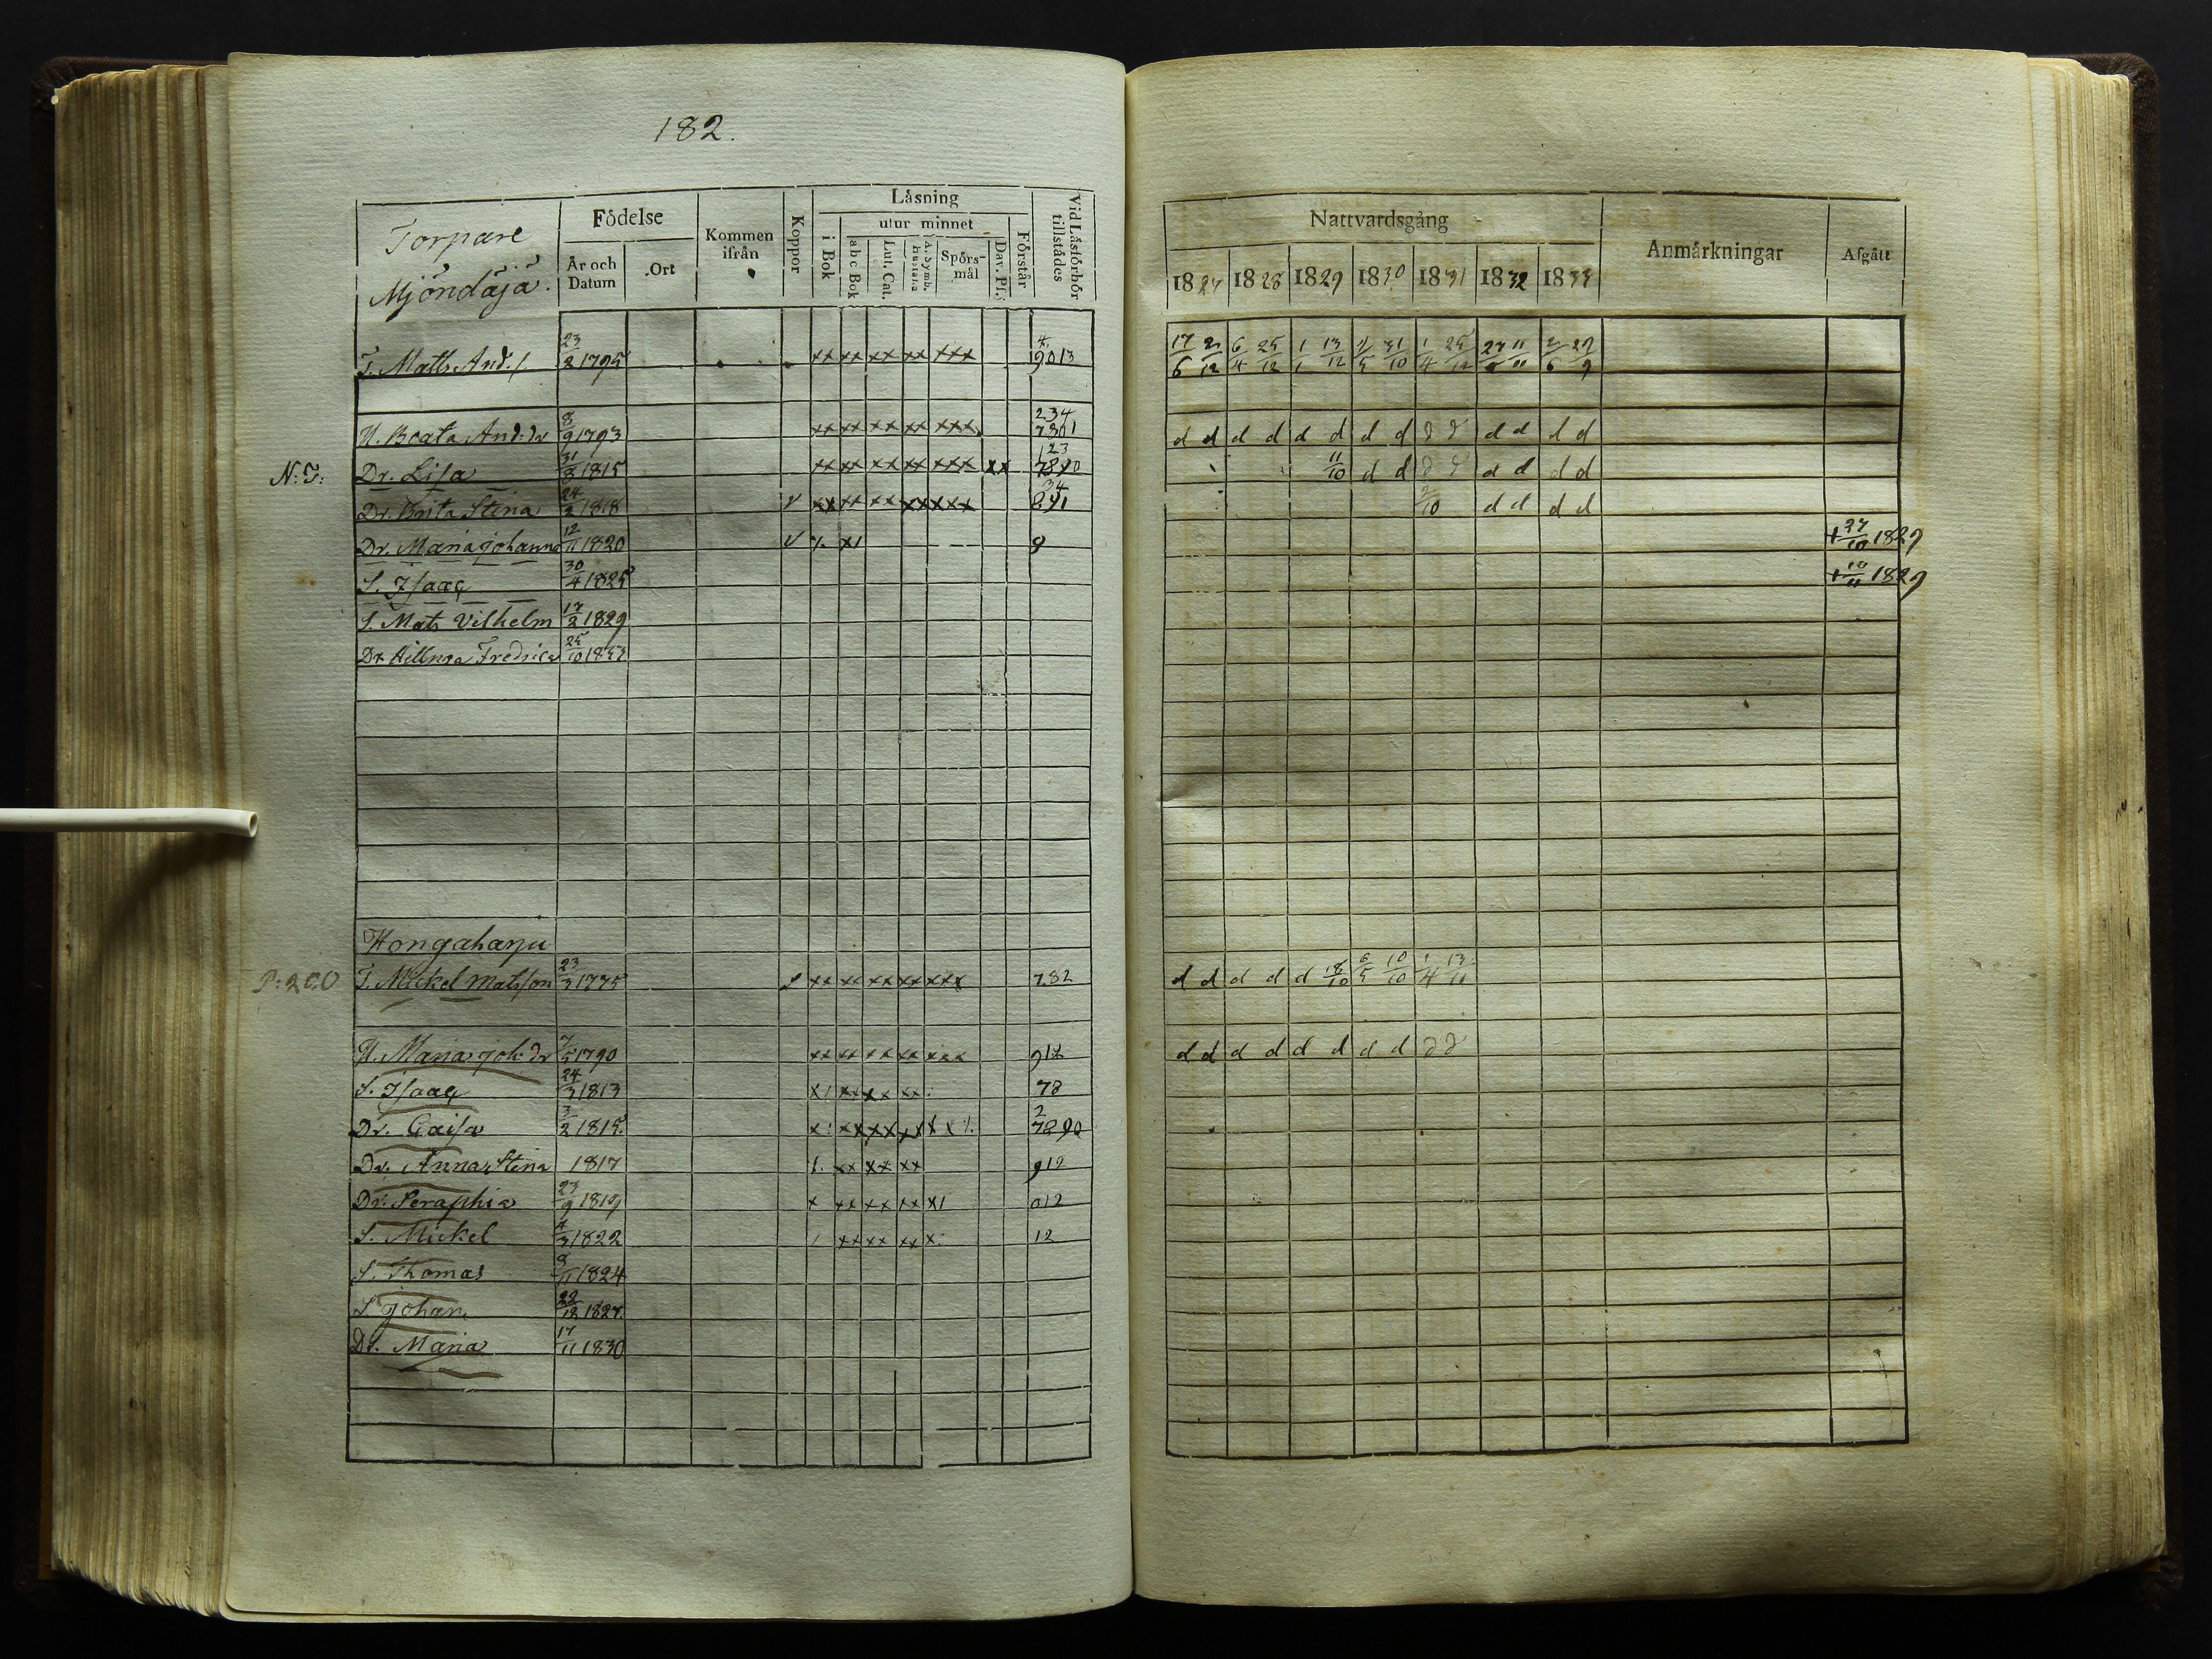 182.
Torpare
Mjöndäjä.
Födelse
År och Datum
Ort
Kommen ifrån
Koppor
Låsning
i Bok
utur minnet
abc Bok
Lut. Cat.
A. Symb.
Hustafla
Spörs-mål
Dav. Ps.
Förstår
Vid Låsförhör tillstådes
T. Matts And./. 23/2 1795 xx xx xx xx xxx 4. 9013
H. Beata And:dr 8/9 1793 xx xx xx xx xxx. 234 7801
N:T: Dr. Lisa 31/8 1815 xx xx xx xx xxx xx 123 7890
Dr. Brita Stina 24/2 1818 v xx xx xx xx xxx 34 891
Dr. Maria Johanna 12/11 1820 v /. x/ 9
S. Isaac 30/4 1825
S. Mats Vilhelm 17/2 1829
Dr. Fredrica 25/10
Hongaharju
P: 200 T. Mickel Matsson 23/3 1775 v xx xx xx xx xxx 782
H. Maria Joh:dr 7/5 1790 xx xx xx xx xxx 912
S. Isaac 24/3 1813 x/ xx xx xx: 78
Dr. Caisa 3/2 1815. x: xx xx xx x x /. 2 7890
Dr. Anna Stina 1817 /. xx xx xx 912
Dr. Seraphia 23/9 1819 x xx xx xx x/ 012
S. Mickel 4/3 1822 / xx xx xx x: 12
S. Thomas 9/11 1824
S. Johan. 22/12 1827.
Dr. Maria 17/11 1830
Nattvardsgång
Anmårkningar
Afgått
1827 1828 1829 1830 1831 1832 1833
17/6 21/12 6/4 25/12 1/1 13/12 31/10 1/4 25/12 11/11 2/6 29/9
d d d d d d d d d d d d d d
11/10 d d d d d d d d
2/10 d d d d
+ 27/10 1829
+ 10/11 1829
d d d d d 18/10 6/5 10/10 1/4 13/11
d d d d d d d d d d